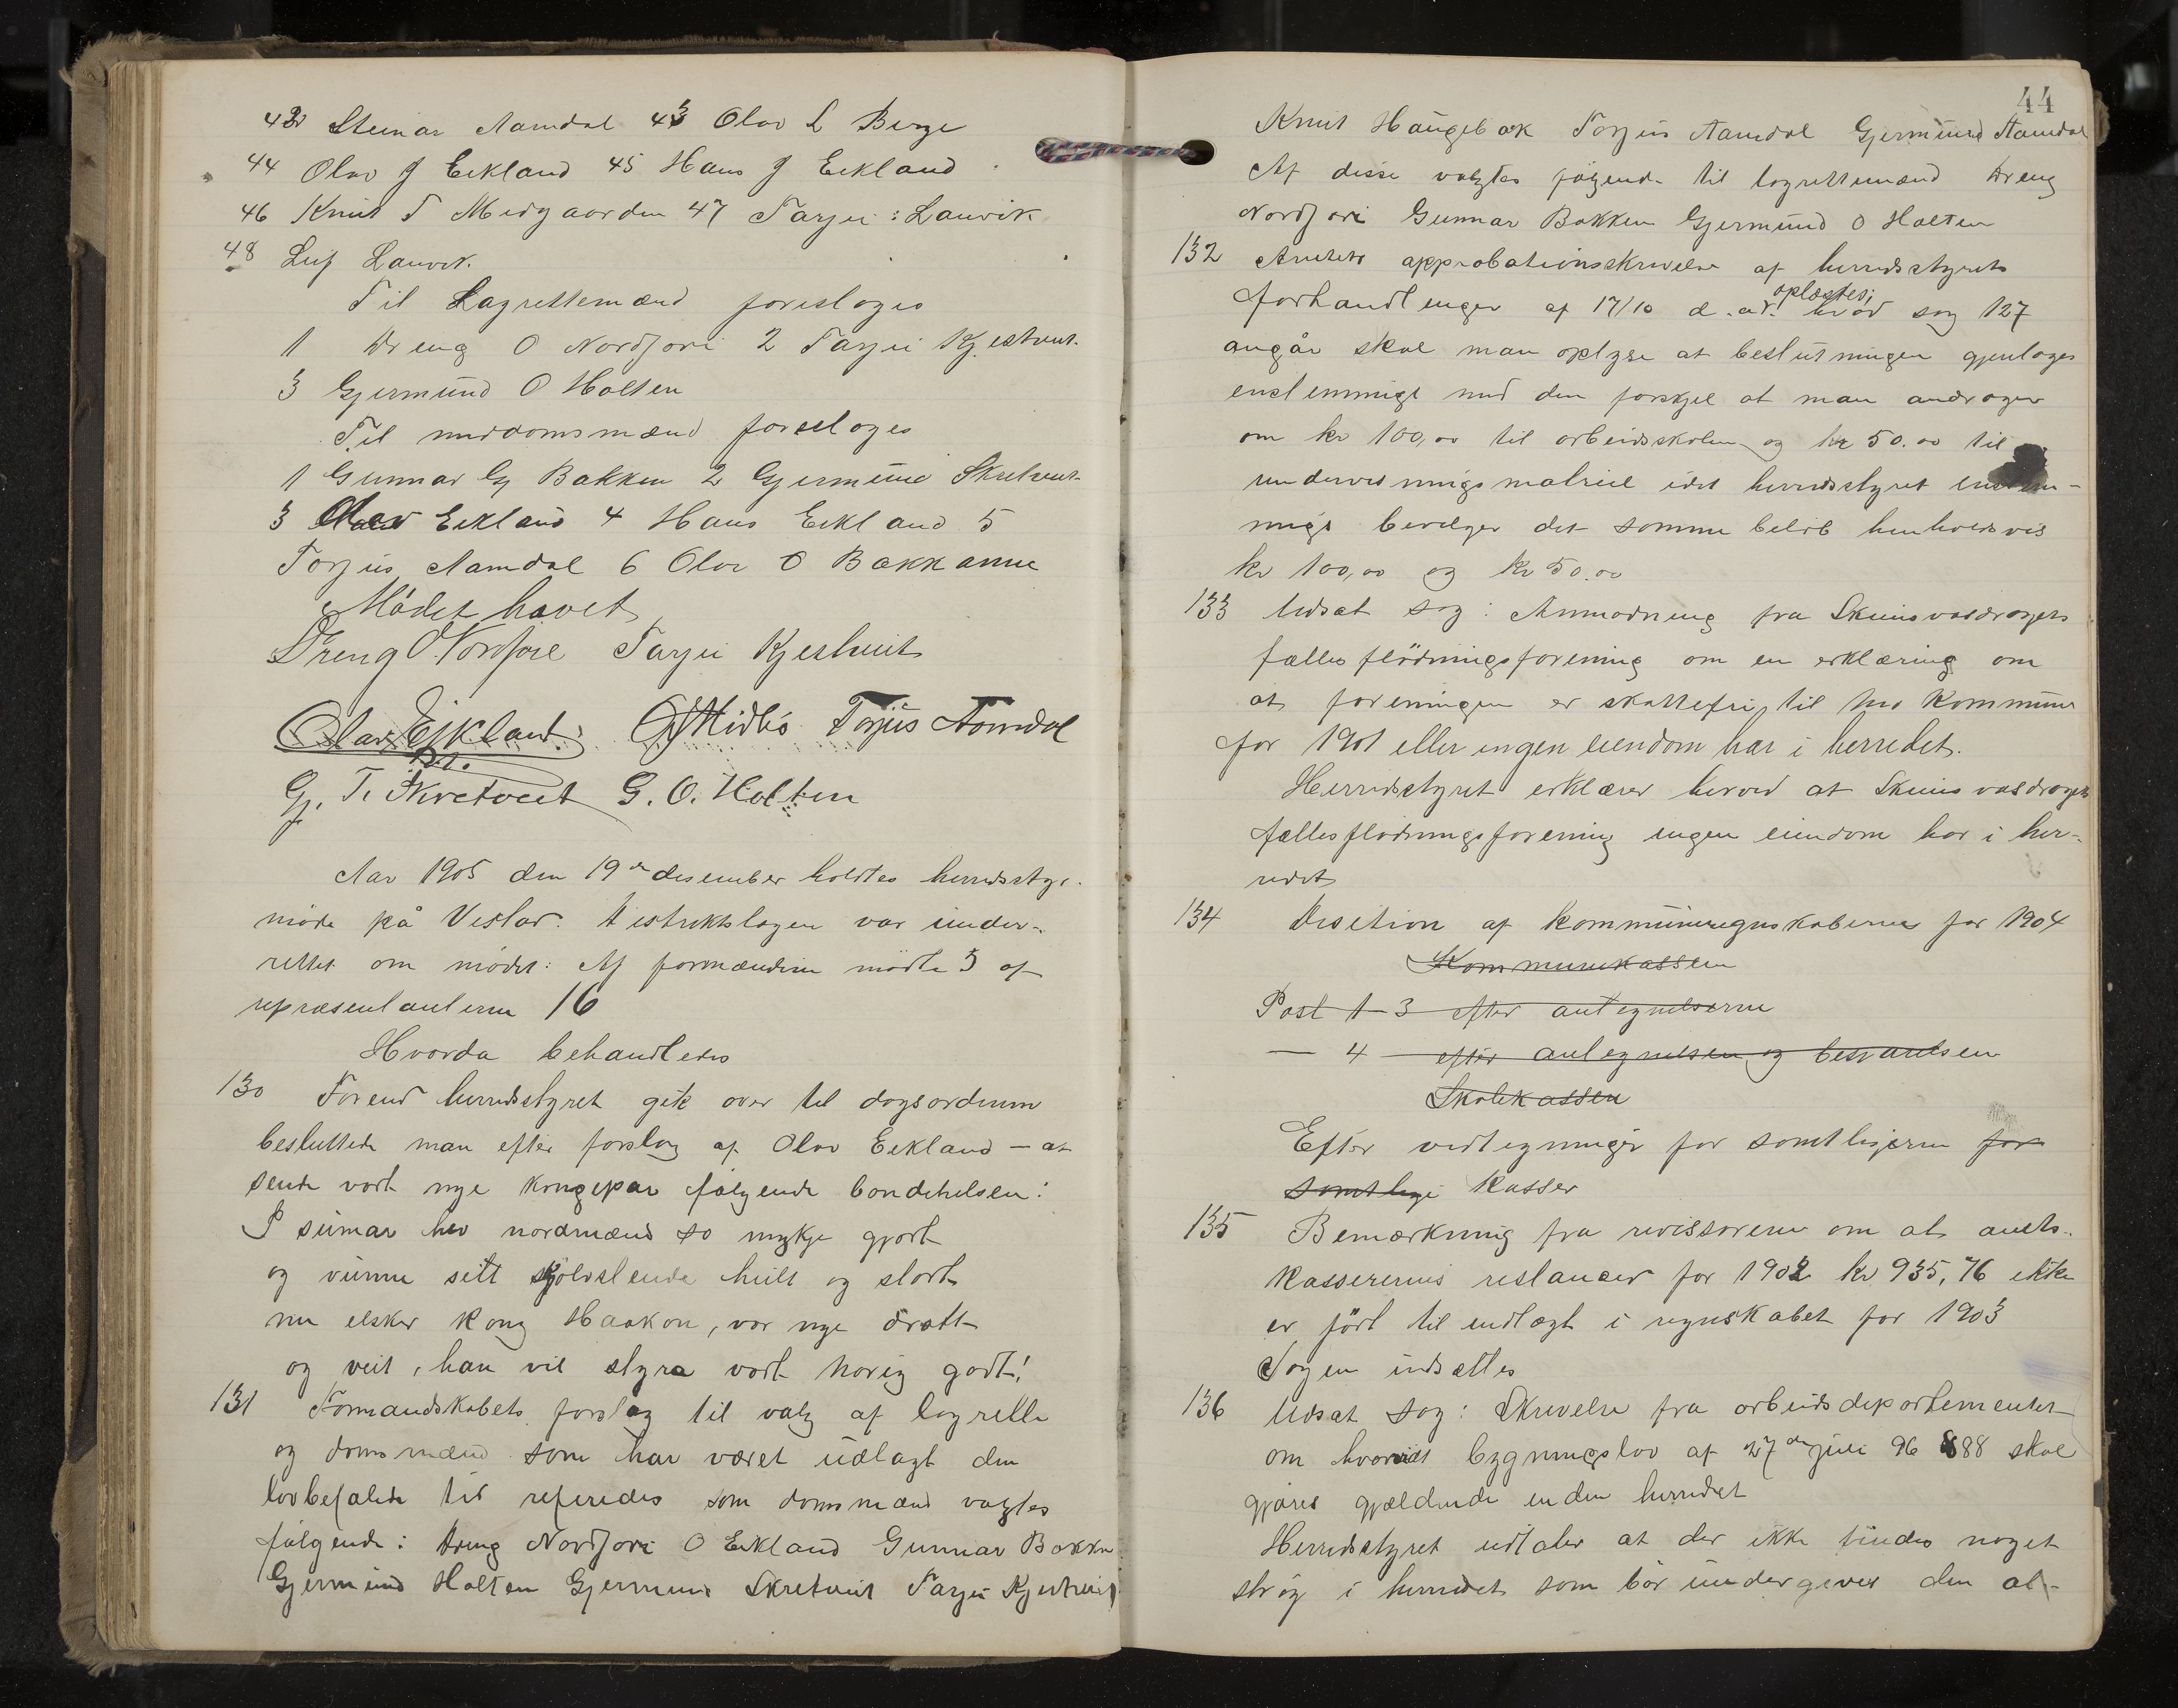 42 Steinar Aamdal 43 Olav L Berge
44 Olav J Eekland 45 Hans J Eekland
46 Knut T Midgaarden 47 Tarjei Lauvik
48 Leif Lauvik.
Til Lagrettemænd foresloges
1 Dreng O Nordjore 2 Tarjei Kjestveit
3 Gjermund O Holten
Til meddomsmænd foresloges
1 Gunnar Gj Bakken 2 Gjermund Skretveit
3 Olav Eekland 4 Hans Eekland 5
Torjus Aamdal 6 Olav O Bakkanne
Mödet hævet
Dreng O. Nordjore Tarjei Kjestveit
Olav Eikland G Midbö Torjus Aamdal
Gj. T. Skretveit G. O. Holten
Aar 1905 den 19de desember holdtes herredsstyr.
möde på Veslad. Distriktslægen var under-
rettet om mödet: Af formændene mödte 3 af
repræsentanterne 16
Hvorda behandledes
130 Forend herredsstyret gik over til dagsordenen
besluttede man efter forslag af Olav Eekland – at
sende vort nye kongepar følgende bondehelsen:
I sumar hev nordmænd so mykje gjort
og vunne sitt sjölvstende heilt og stort
nu elsker kong Haakon, vor nye drott
og veit, han vil styra vort Norig godt!
131 Formandskabets forslag til valg af lagrette
og domsmænd som har været udlagt den
lovbefalede tid refereredes som domsmænd valgtes
følgende: Dreng Nordjore O Eekland Gunnar Bakken
Gjermund Holten Gjermund Skretveit Tarjei Kjestveit
44
Knut Haugebak Torjus Aamdal Gjermund Aamdal
Af disse valgtes følgende til lagrettemænd Dreng
Nordjore Gunnar Bakken Gjermund O Holten
132 Amtets approbationsskrivelse af herredsstyrets
forhandlinger af 17/10 d.år. oplæstes; hvad sag 127
angår skal man oplyse at beslutningen gjentages
enstemmigt med den forskjel at man andrager
om kr 100,00 til arbeidsskolen og kr 50.00 til
undervisningsmatriel idet herredsstyret enstem-
migt bevilger det samme beløb henholdsvis
kr 100,00 og kr 50.00
133 Udsat sag: Anmodning fra Skiensvasdragets
fælles flödningsforening om en erklæring om
at foreningen er skattefri til Mo kommune
for 1901 eller ingen eiendom har i herredet.
Herredsstyret erklærer herved at Skiensvasdragets
fællesflödningsforening ingen eiendom har i her-
redet
134 Desition af kommuneregnskaberne for 1904
Kommunekassen
Post 1–3 efter antegnelserne
— 4 — efter antegnelsen og besvarelsen
Skolekassen
Efter vedtegninger for samtligerne for
samtlige kasser
135 Bemærkning fra revisorerne om at amts-
kassererens restancer for 1902 kr 935,76 ikke
er fört til indtægt i regnskabet for 1903
Sagen udsættes
136 Udsat sag: Skrivelse fra arbeidsdepartementet
om hvorvidt bygningslov af 27de juli 96 § 88 skal
gjöres gjældende enden herredet
Herredsstyret udtaler at der ikke findes noget
strög i herredet som bör undergives den al-